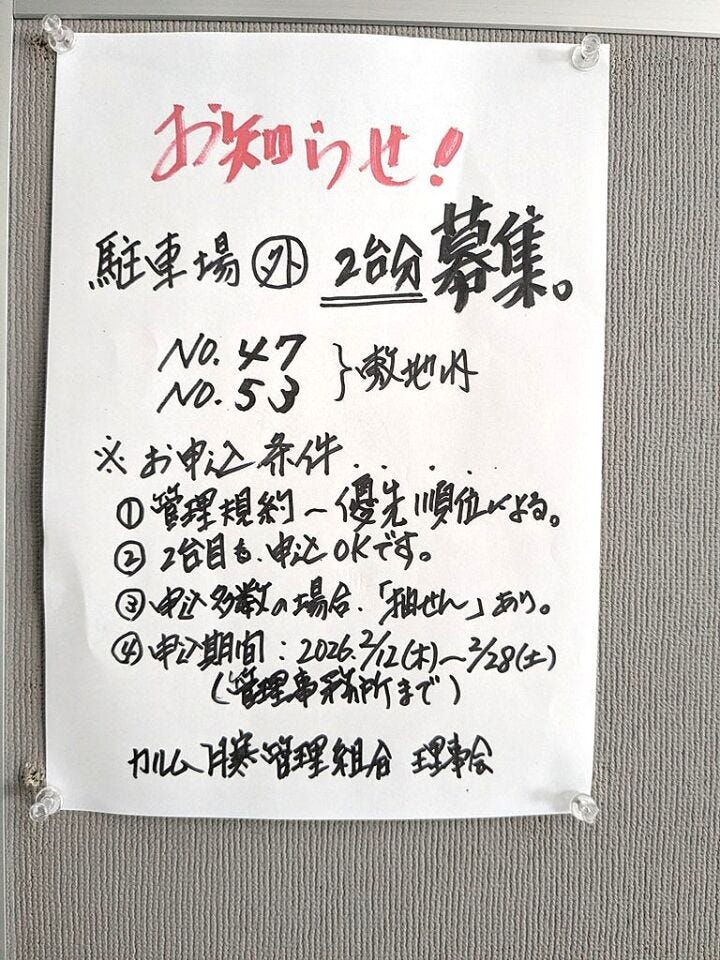 お知らせ!
駐車場 外 2台分 募集。
NO. 47
NO. 53 } 敷地内
※ お申込条件.....
① 管理規約〜優先順位による。
② 2台目も、申込OKです。
③ 申込多数の場合、「抽せん」あり。
④ 申込期間:2026.2/12(木)〜2/28(土)
(管理事務所まで)
カルム月寒管理組合 理事会